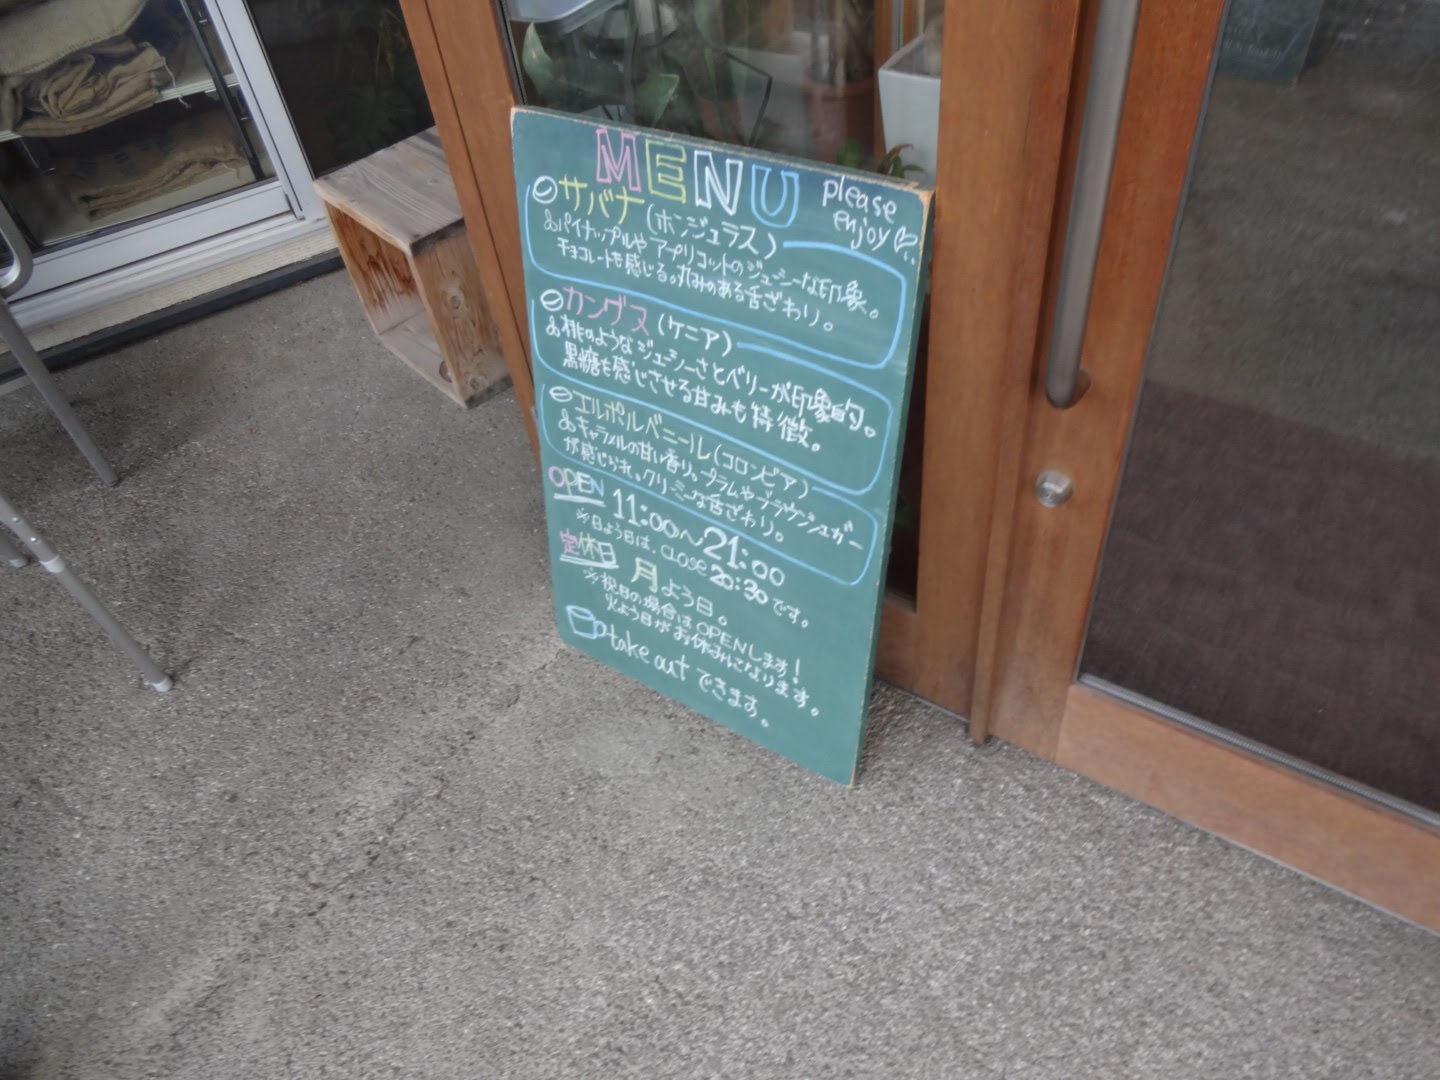 MENU please
enjoy
サバナ(ホンジュラス)
パイナップルやアプリコットのジューシーな印象。
チョコレートも感じる。丸みのある舌ざわり。
カングヌ(ケニア)
桃のようなジューシーさとベリーが印象的。
黒糖を感じさせる甘みも特徴。
エルポルベニール(コロンビア)
キャラメルの甘い香り。プラムやブラウンシュガー
が感じられ、クリーミーな舌ざわり。
OPEN 11:00～21:00
※日よう日は、CLOSE 20:30です。
定休日 月よう日。
※祝日の場合はOPENします!
火よう日がお休みになります。
take out できます。